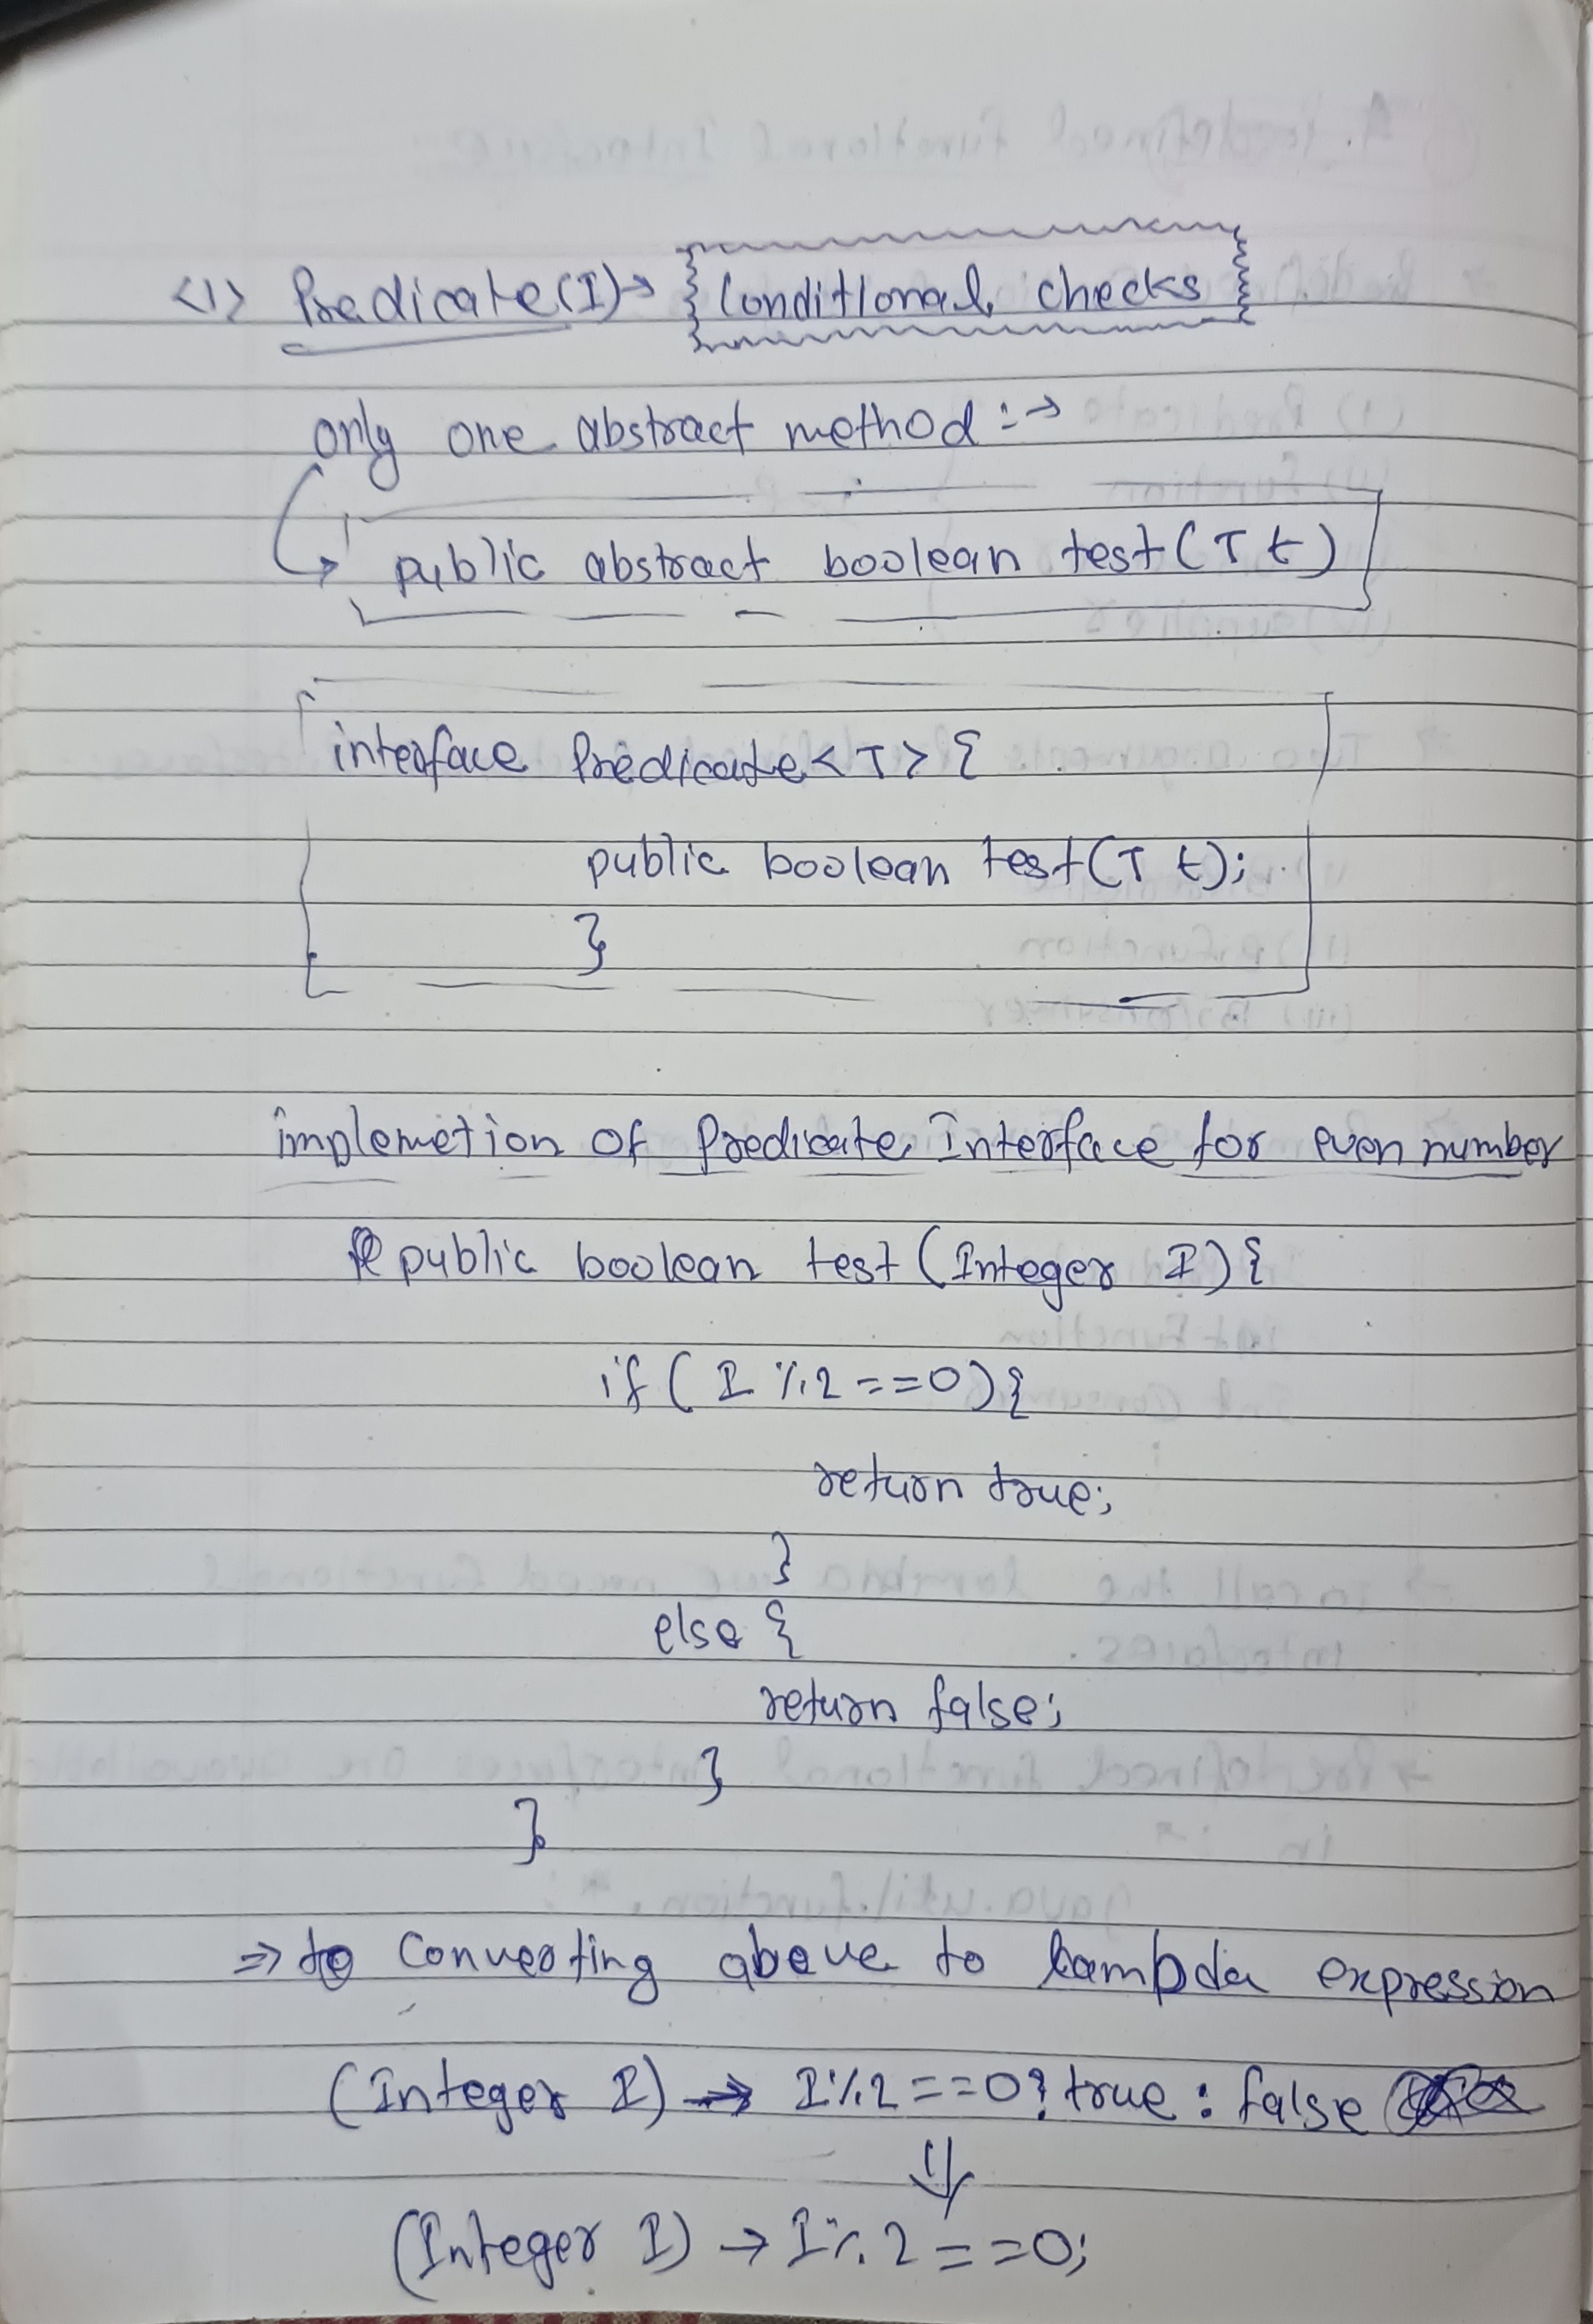 <1> Predicate(I)→ Conditional checks
only one abstract method :→
public abstract boolean test(T t)
interface Predicate<T> {
public boolean test(T t);
}
implemetion of Predicate Interface for even number
public boolean test(Integer I){
if( I %2==0){
return true;
}
else {
return false;
}
}
⇒ to Converting above to lambda expression
(Integer I) → I%2==0? true : false
⇓
(Integer I) → I%2==0;